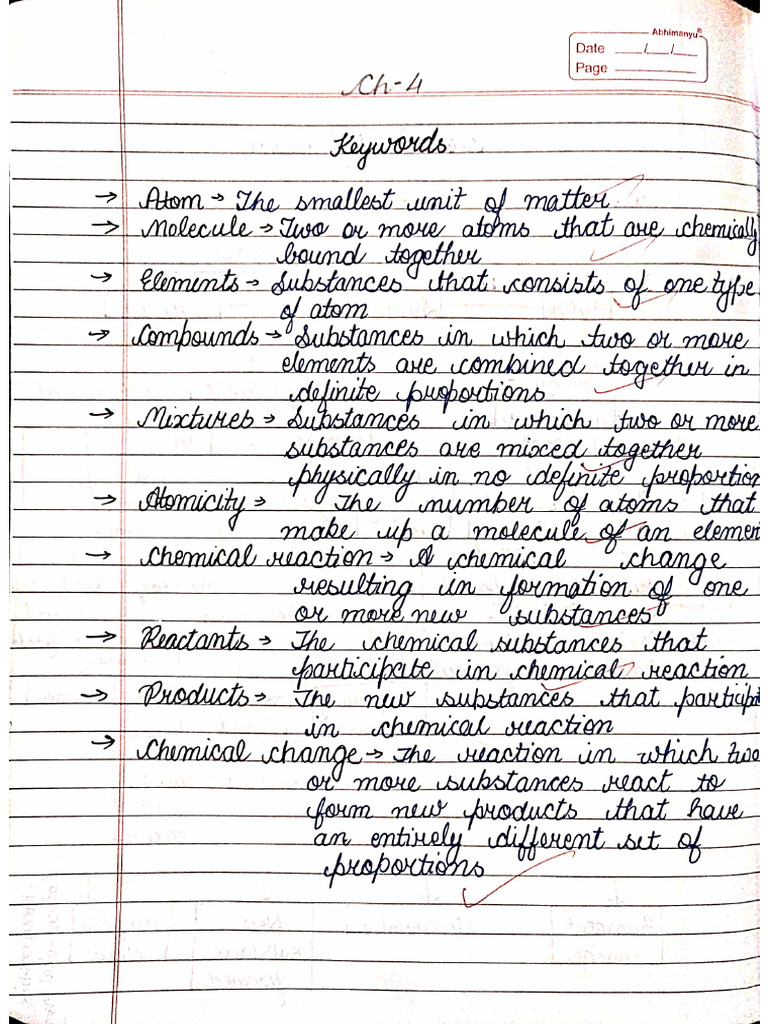 Abhimanyu®
Date __/__/__
Page ______
Ch-4
Keywords
→ Atom → The smallest unit of matter
→ Molecule → Two or more atoms that are chemically
bound together
→ Elements → Substances that consists of one type
of atom
→ Compounds → Substances in which two or more
elements are combined together in
definite proportions
→ Mixtures → Substances in which two or more
substances are mixed together
physically in no definite proportion
→ Atomicity → The number of atoms that
make up a molecule of an elemen
→ Chemical reaction → A chemical change
resulting in formation of one
or more new substances
→ Reactants → The chemical substances that
participate in chemical reaction
→ Products → The new substances that particip
in chemical reaction
→ Chemical change → The reaction in which two
or more substances react to
form new products that have
an entirely different set of
proportions